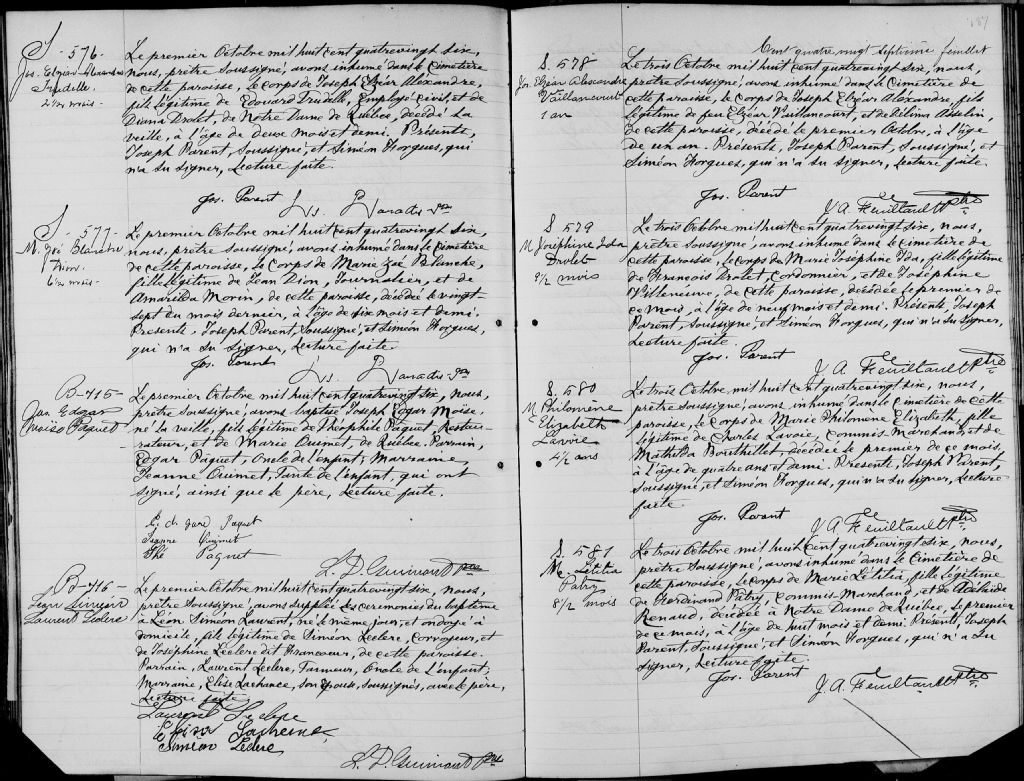 S - 576 -
Jos. Elzéar Alexandre
Trudelle.
2 1/2 mois -
Le premier Octobre mil huit cent quatrevingt six,
nous, prêtre soussigné, avons inhumé dans le Cimetière
de cette paroisse, le corps de Joseph Elzéar Alexandre,
fils légitime de Edouard Trudelle, Employé civil, et de
Diana Drolet, de Notre Dame de Québec, décédé la
veille, à l'âge de deux mois et demi. Présents,
Joseph Parent, soussigné, et Siméon Forgues, qui
n'a su signer, Lecture faite.
Jos. Parent
Ls. Paradis Ptre
S - 577 -
M. Zoé Blanche
Dion.
6 1/2 mois -
Le premier Octobre mil huit cent quatrevingt six,
nous, prêtre soussigné, avons inhumé dans le cimetière
de cette paroisse, le corps de Marie Zoé Blanche,
fille légitime de Jean Dion, Journalier, et de
Amarilda Morin, de cette paroisse, décédée le vingt-
sept du mois dernier, à l'âge de six mois et demi.
Présents, Joseph Parent, soussigné, et Siméon Forgues,
qui n'a su signer, Lecture faite.
Jos. Parent
Ls. Paradis Ptre
B - 415 -
Jos. Edgar
Moïse Paquet
Le premier Octobre mil huit cent quatrevingt six, nous,
prêtre soussigné, avons baptisé Joseph Edgar Moïse,
né la veille, fils légitime de Théophile Paquet, Restau-
rateur, et de Marie Ouimet, de Québec. Parrain,
Edgar Paquet, Oncle de l'enfant; Marraine,
Jeanne Ouimet, Tante de l'enfant, qui ont
signé, ainsi que le père, Lecture faite.
Paquet
Jeanne Ouimet
Thé Paquet
Ptre
B - 416 -
Léon Siméon
Laurent Leclerc
Le premier Octobre mil huit cent quatrevingt six, nous,
prêtre soussigné, avons suppléé les cérémonies du baptême
à Léon Siméon Laurent, né le même jour, et ondoyé à
domicile, fils légitime de Siméon Leclerc, Corroyeur, et
de Joséphine Leclerc dit Francoeur, de cette paroisse.
Parrain, Laurent Leclerc, Tanneur, Oncle de l'enfant;
Marraine, Elise Lachance, son épouse, soussignés, avec le père,
Lecture faite.
Laurent Leclerc
Lachance
Siméon Leclerc
Ptre
187
Cent quatre vingt septième feuillet
S. 578
Jos. Elzéar Alexandre
Vaillancourt
1 an
Le trois Octobre mil huit cent quatrevingt six, nous,
prêtre soussigné, avons inhumé dans le Cimetière de
cette paroisse, le corps de Joseph Elzéar Alexandre, fils
légitime de feu Elzéar Vaillancourt, et de Délina Asselin,
de cette paroisse, décédé le premier Octobre, à l'âge
de un an. Présents, Joseph Parent, soussigné, et
Siméon Forgues, qui n'a su signer, Lecture faite.
Jos. Parent
J. A. Feuiltault Ptre
S. 579
M. Joséphine Ida
Drolet
9 1/2 mois
Le trois Octobre mil huit cent quatrevingt six, nous,
prêtre soussigné, avons inhumé dans le cimetière de
cette paroisse, le corps de Marie Joséphine Ida, fille légitime
de François Drolet, Cordonnier, et de Joséphine
Villeneuve, de cette paroisse, décédée le premier de
ce mois, à l'âge de neuf mois et demi. Présents, Joseph
Parent, soussigné, et Siméon Forgues, qui n'a su signer,
Lecture faite.
Jos. Parent
J. A. Feuiltault Ptre
S. 580
M. Philomène
Elizabeth
Lavoie
4 1/2 ans
Le trois Octobre mil huit cent quatrevingt six, nous,
prêtre soussigné, avons inhumé dans le cimetière de cette
paroisse, le corps de Marie Philomène Elizabeth, fille
légitime de Charles Lavoie, Commis-Marchand, et de
Mathilda Bouthillet, décédée le premier de ce mois,
à l'âge de quatre ans et demi. Présents, Joseph Parent,
soussigné, et Siméon Forgues, qui n'a su signer, Lecture
faite.
Jos. Parent
J. A. Feuiltault Ptre
S. 581
M. Létitia
Patry
8 1/2 mois
Le trois Octobre mil huit cent quatrevingt six, nous,
prêtre soussigné, avons inhumé dans le Cimetière de
cette paroisse, le corps de Marie Létitia, fille légitime
de Ferdinand Patry, Commis-Marchand, et de Adélaïde
Renaud, décédée à Notre Dame de Québec, le premier
de ce mois, à l'âge de huit mois et demi. Présents, Joseph
Parent, soussigné, et Siméon Forgues, qui n'a su
signer, Lecture faite.
Jos. Parent
J. A. Feuiltault Ptre